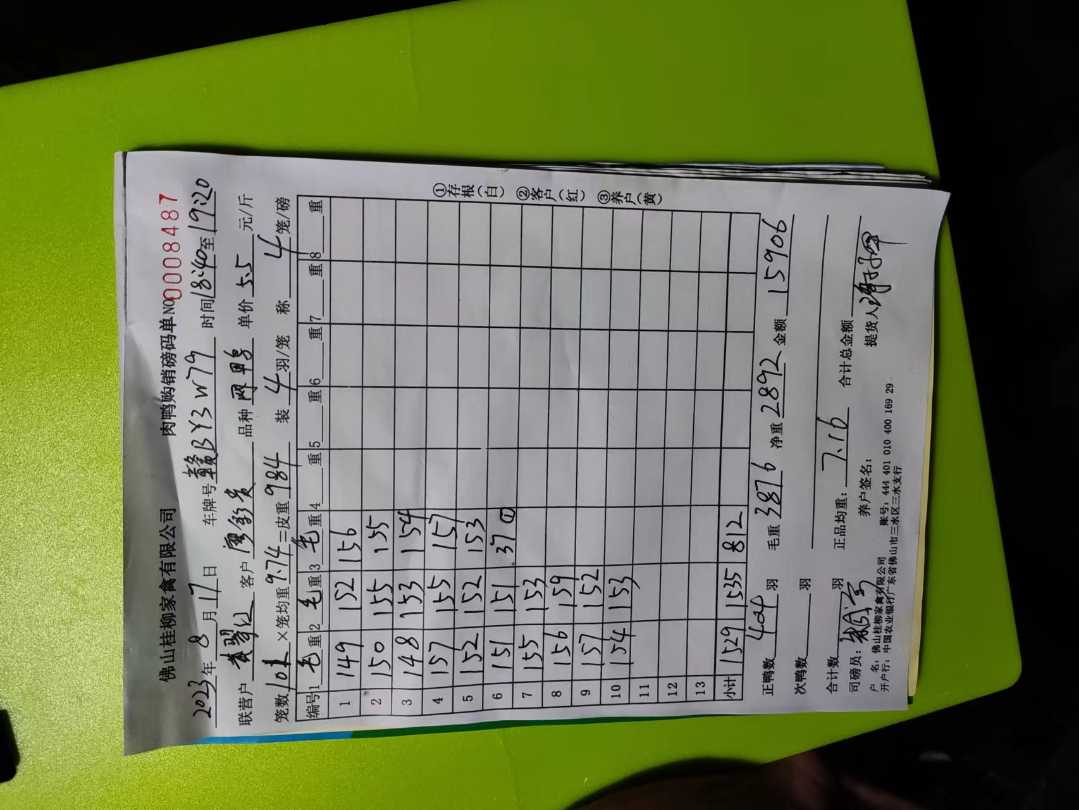 佛山桂柳家禽有限公司 肉鸭购销磅码单 NO 0008487
2023年 8 月 17 日 车牌号 赣BY3W79 时间 18:40至19:20
联营户 客户 品种 单价 5.5 元/斤
笼数 101 ×笼均重 9.74 =皮重 984 装 4 羽/笼 称 4 笼/磅
编号 1 毛 重 2 毛 重 3 毛 重 4 重 5 重 6 重 7 重 8 重
1 149 152 156
2 150 155 155
3 148 153 154
4 157 155 157
5 152 152 153
6 151 151 37 ①
7 155 153
8 156 159
9 157 152
10 154 153
11
12
13
小计 1529 1535 812
正鸭数 404 羽 毛重 3876 净重 2892 金额 15906
次鸭数 羽
合计数 羽 正品均重: 7.16 合计总金额
司磅员: 养户签名: 提货人
户 名: 佛山桂柳家禽有限公司 账号: 444 401 010 400 169 29
开户行: 中国农业银行广东省佛山市三水区三水支行
①存根(白) ②客户(红) ③养户(黄)